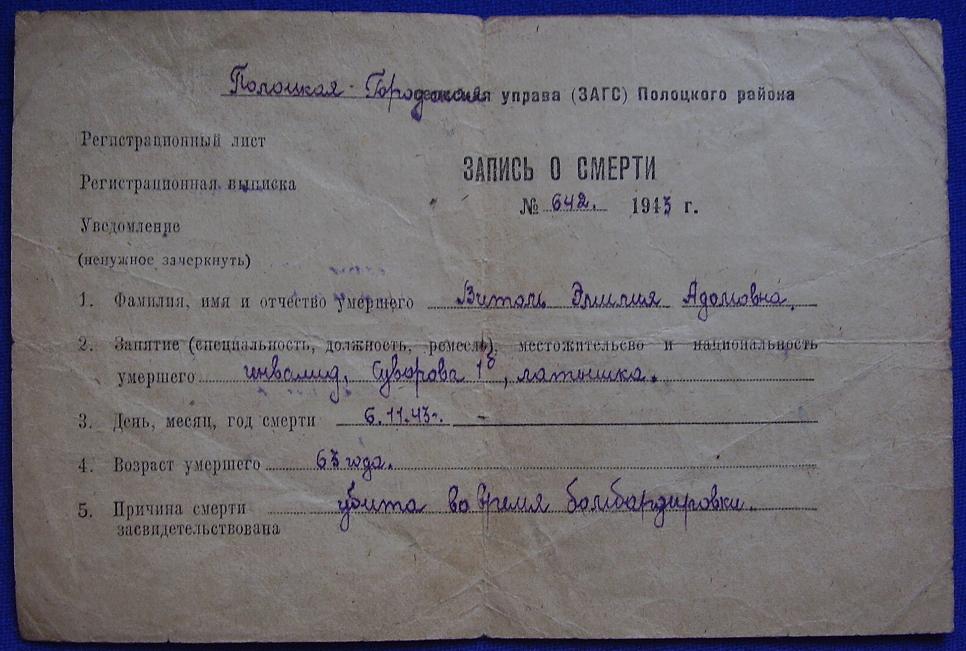 Полоцкая Городская управа (ЗАГС) Полоцкого района
Регистрационный лист
ЗАПИСЬ О СМЕРТИ
Регистрационная выписка
№ 642. 1943 г.
Уведомление
(ненужное зачеркнуть)
1. Фамилия, имя и отчество умершего Витоль Эмилия Адомовна.
2. Занятие (специальность, должность, ремесло), местожительсво и национальность
умершего инвалид, Суворова 13, латышка.
3. День, месяц, год смерти 6.11.43г.
4. Возраст умершего 63 года.
5. Причина смерти убита во время бомбардировки.
засвидетельствована